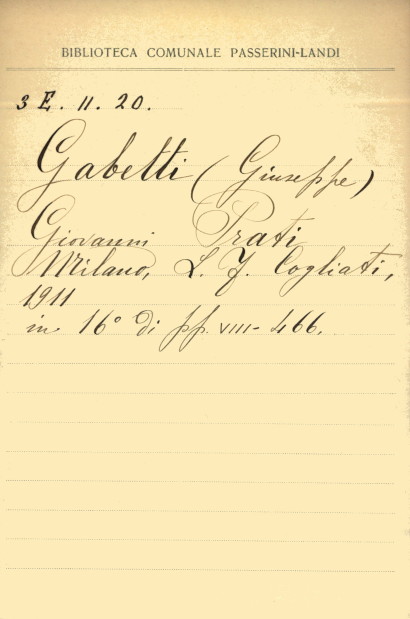 BIBLIOTECA COMUNALE PASSERINI-LANDI
3 E. 11. 20.
Gabetti (Giuseppe)
Giovanni Prati
Milano, L. F. Cogliati,
1911
in 16° di pp. VIII-466.